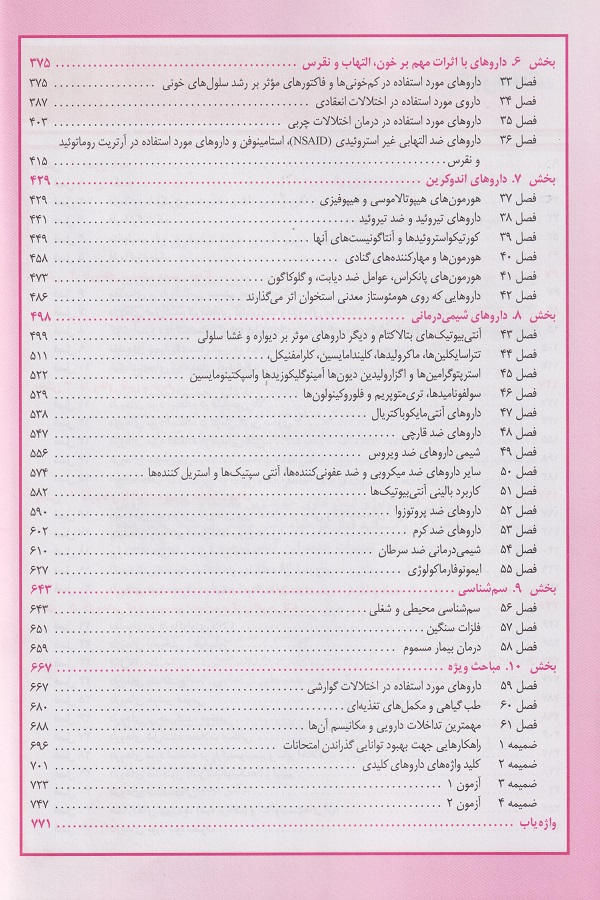 بخش ۶. داروهای با اثرات مهم بر خون، التهاب و نقرس ۳۷۵
فصل ۳۳ داروهای مورد استفاده در کم‌خونی‌ها و فاکتورهای مؤثر بر رشد سلول‌های خونی ۳۷۵
فصل ۳۴ داروی مورد استفاده در اختلالات انعقادی ۳۸۷
فصل ۳۵ داروهای مورد استفاده در درمان اختلالات چربی ۴۰۳
فصل ۳۶ داروهای ضد التهابی غیر استروئیدی (NSAID)، استامینوفن و داروهای مورد استفاده در آرتریت روماتوئید
و نقرس ۴۱۵
بخش ۷. داروهای اندوکرین ۴۲۹
فصل ۳۷ هورمون‌های هیپوتالاموسی و هیپوفیزی ۴۲۹
فصل ۳۸ داروهای تیروئید و ضد تیروئید ۴۴۱
فصل ۳۹ کورتیکواستروئیدها و آنتاگونیست‌های آنها ۴۴۹
فصل ۴۰ هورمون‌ها و مهارکننده‌های گنادی ۴۵۸
فصل ۴۱ هورمون‌های پانکراس، عوامل ضد دیابت، و گلوکاگون ۴۷۳
فصل ۴۲ داروهایی که روی هومئوستاز معدنی استخوان اثر می‌گذارند ۴۸۶
بخش ۸. داروهای شیمی‌درمانی ۴۹۸
فصل ۴۳ آنتی‌بیوتیک‌های بتالاکتام و دیگر داروهای موثر بر دیواره و غشا سلولی ۴۹۹
فصل ۴۴ تتراسایکلین‌ها، ماکرولیدها، کلیندامایسین، کلرامفنیکل، ۵۱۱
فصل ۴۵ استرپتوگرامین‌ها و اگزازولیدین دیون‌ها آمینوگلیکوزیدها واسپکتینومایسین ۵۲۲
فصل ۴۶ سولفونامیدها، تری‌متوپریم و فلوروکینولون‌ها ۵۲۹
فصل ۴۷ داروهای آنتی‌مایکوباکتریال ۵۳۸
فصل ۴۸ داروهای ضد قارچی ۵۴۷
فصل ۴۹ شیمی داروهای ضد ویروس ۵۵۶
فصل ۵۰ سایر داروهای ضد میکروبی و ضد عفونی‌کننده‌ها، آنتی سپتیک‌ها و استریل کننده‌ها ۵۷۴
فصل ۵۱ کاربرد بالینی آنتی‌بیوتیک‌ها ۵۸۲
فصل ۵۲ داروهای ضد پروتوزوا ۵۹۰
فصل ۵۳ داروهای ضد کرم ۶۰۲
فصل ۵۴ شیمی‌درمانی ضد سرطان ۶۱۰
فصل ۵۵ ایمونوفارماکولوژی ۶۲۷
بخش ۹. سم‌شناسی ۶۴۳
فصل ۵۶ سم‌شناسی محیطی و شغلی ۶۴۳
فصل ۵۷ فلزات سنگین ۶۵۱
فصل ۵۸ درمان بیمار مسموم ۶۵۹
بخش ۱۰. مباحث ویژه ۶۶۷
فصل ۵۹ داروهای مورد استفاده در اختلالات گوارشی ۶۶۷
فصل ۶۰ طب گیاهی و مکمل‌های تغذیه‌ای ۶۸۰
فصل ۶۱ مهمترین تداخلات دارویی و مکانیسم آن‌ها ۶۸۸
ضمیمه ۱ راهکارهایی جهت بهبود توانایی گذراندن امتحانات ۶۹۶
ضمیمه ۲ کلید واژه‌های داروهای کلیدی ۷۰۱
ضمیمه ۳ آزمون ۱ ۷۲۳
ضمیمه ۴ آزمون ۲ ۷۴۷
واژه‌یاب ۷۷۱